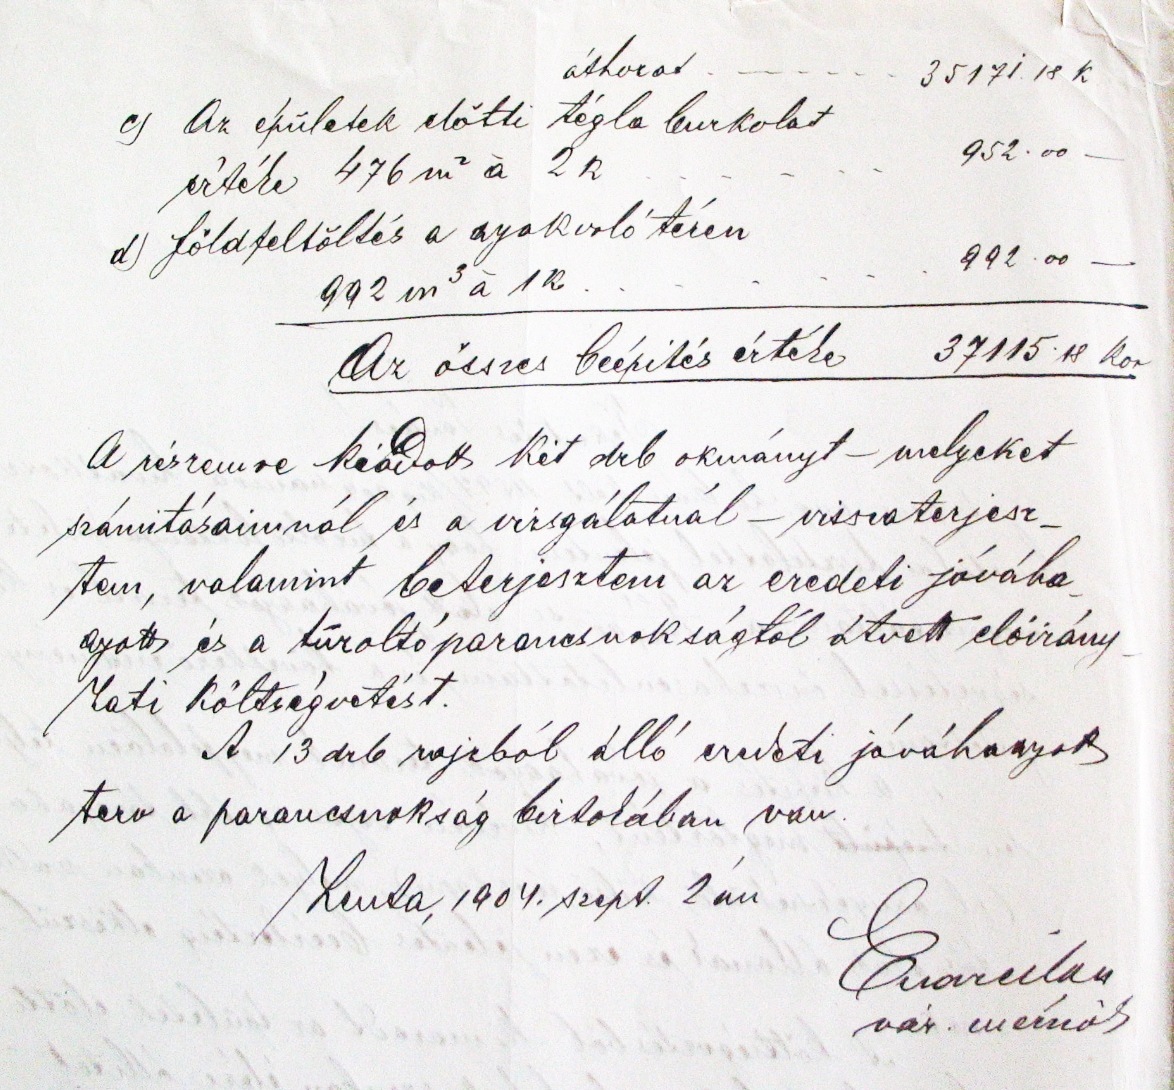 áthozat . - - - - . . . 35171.18 K
c) Az épületek előtti tégla burkolat
értéke 476 m² à 2 K . . - . - - . . 952.00 —
d) földfeltöltés a gyakorló téren
992 m³ à 1 K . . . . - . . . 992.00 —
Az összes beépítés értéke 37115.18 Kor
A részemre kiadott két drb okmányt – melyeket
számitásaimnál és a vizsgálatnál – visszaterjesz-
tem, valamint beterjesztem az eredeti jóváha-
gyott és a tűzoltóparancsnokságtól átvett előirány-
zati költségvetést.
A 13 drb rajzból álló eredeti jóváhagyott
terv a parancsnokság birtokában van.
Zenta, 1904. szept. 2 án
vár. mérnök